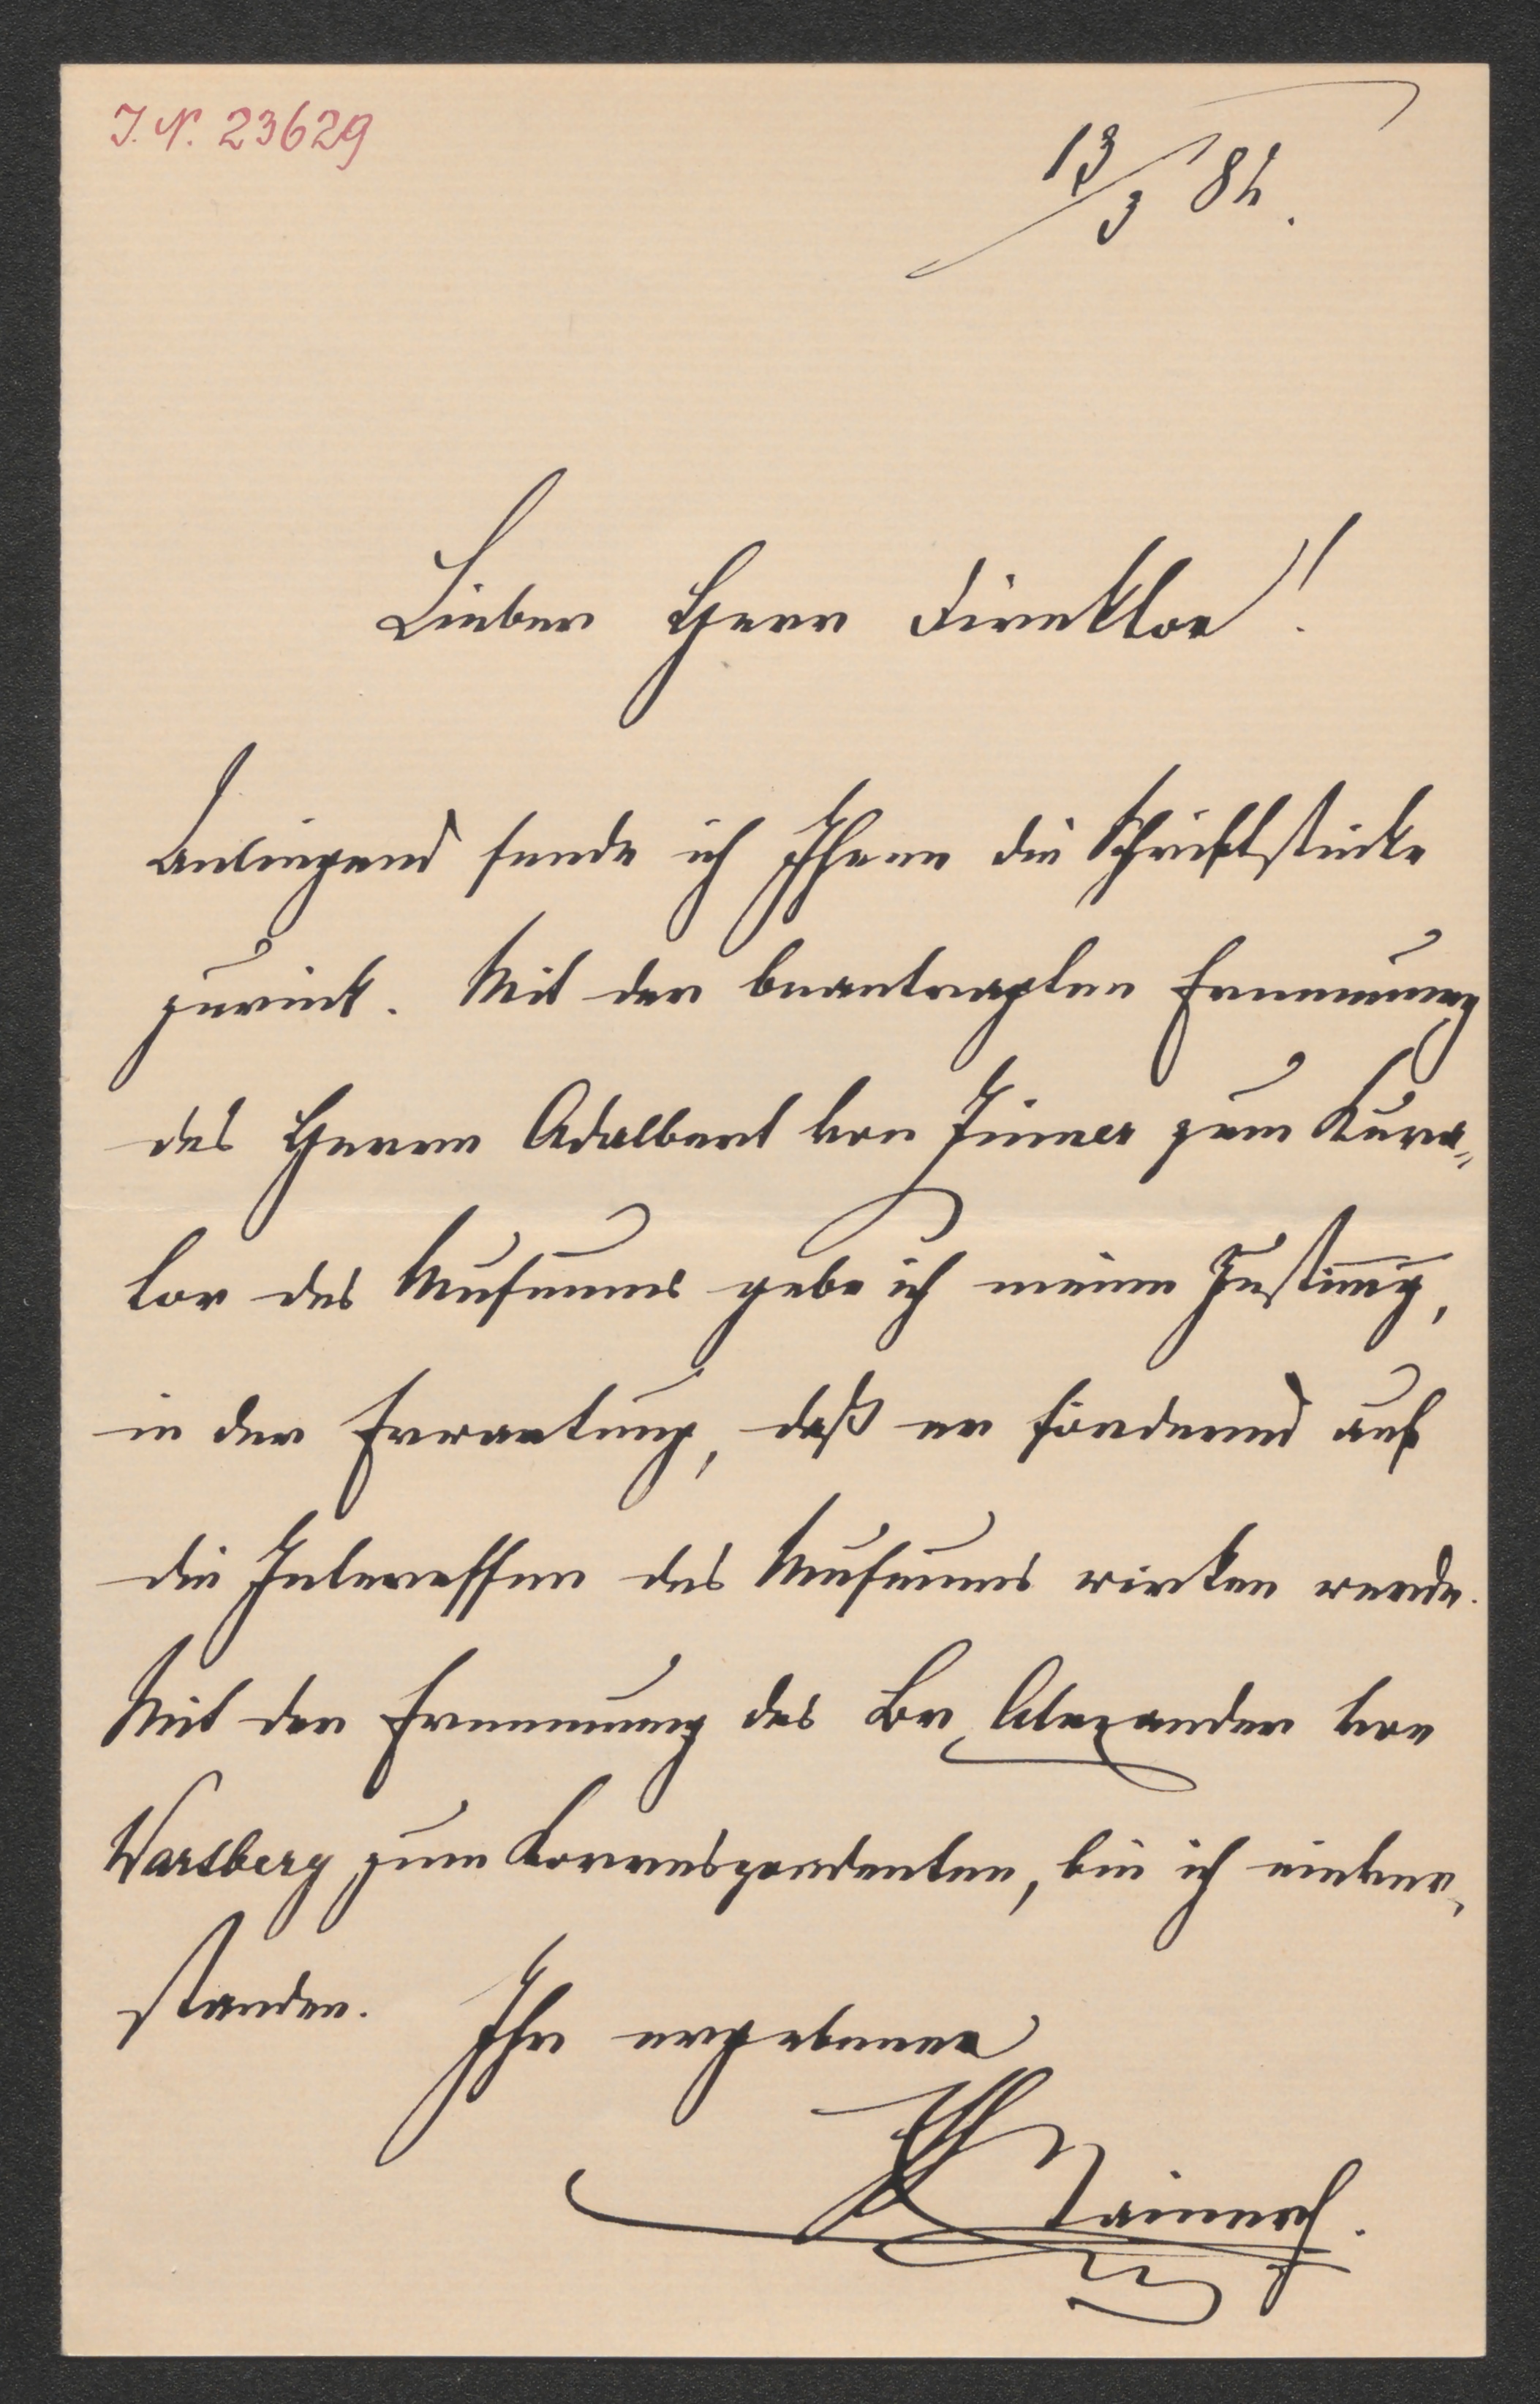 J. N. 23629
13/3 84.
Lieber Herr Direktor!
Anliegend sende ich Ihnen die Schriftstücke
zurück. Mit der beantragten Ernennung
des Herrn Adalbert von zum Kura„
tor des Museums gebe ich meine Zustimg,
in der Erwartung, daß er fördernd auf
die Interessen des Museums wirken werde.
Mit der Ernennung des Br. Alexander von
Warsberg zum Korrespondenten, bin ich einver„
standen.
Ihr ergebener
Rainer